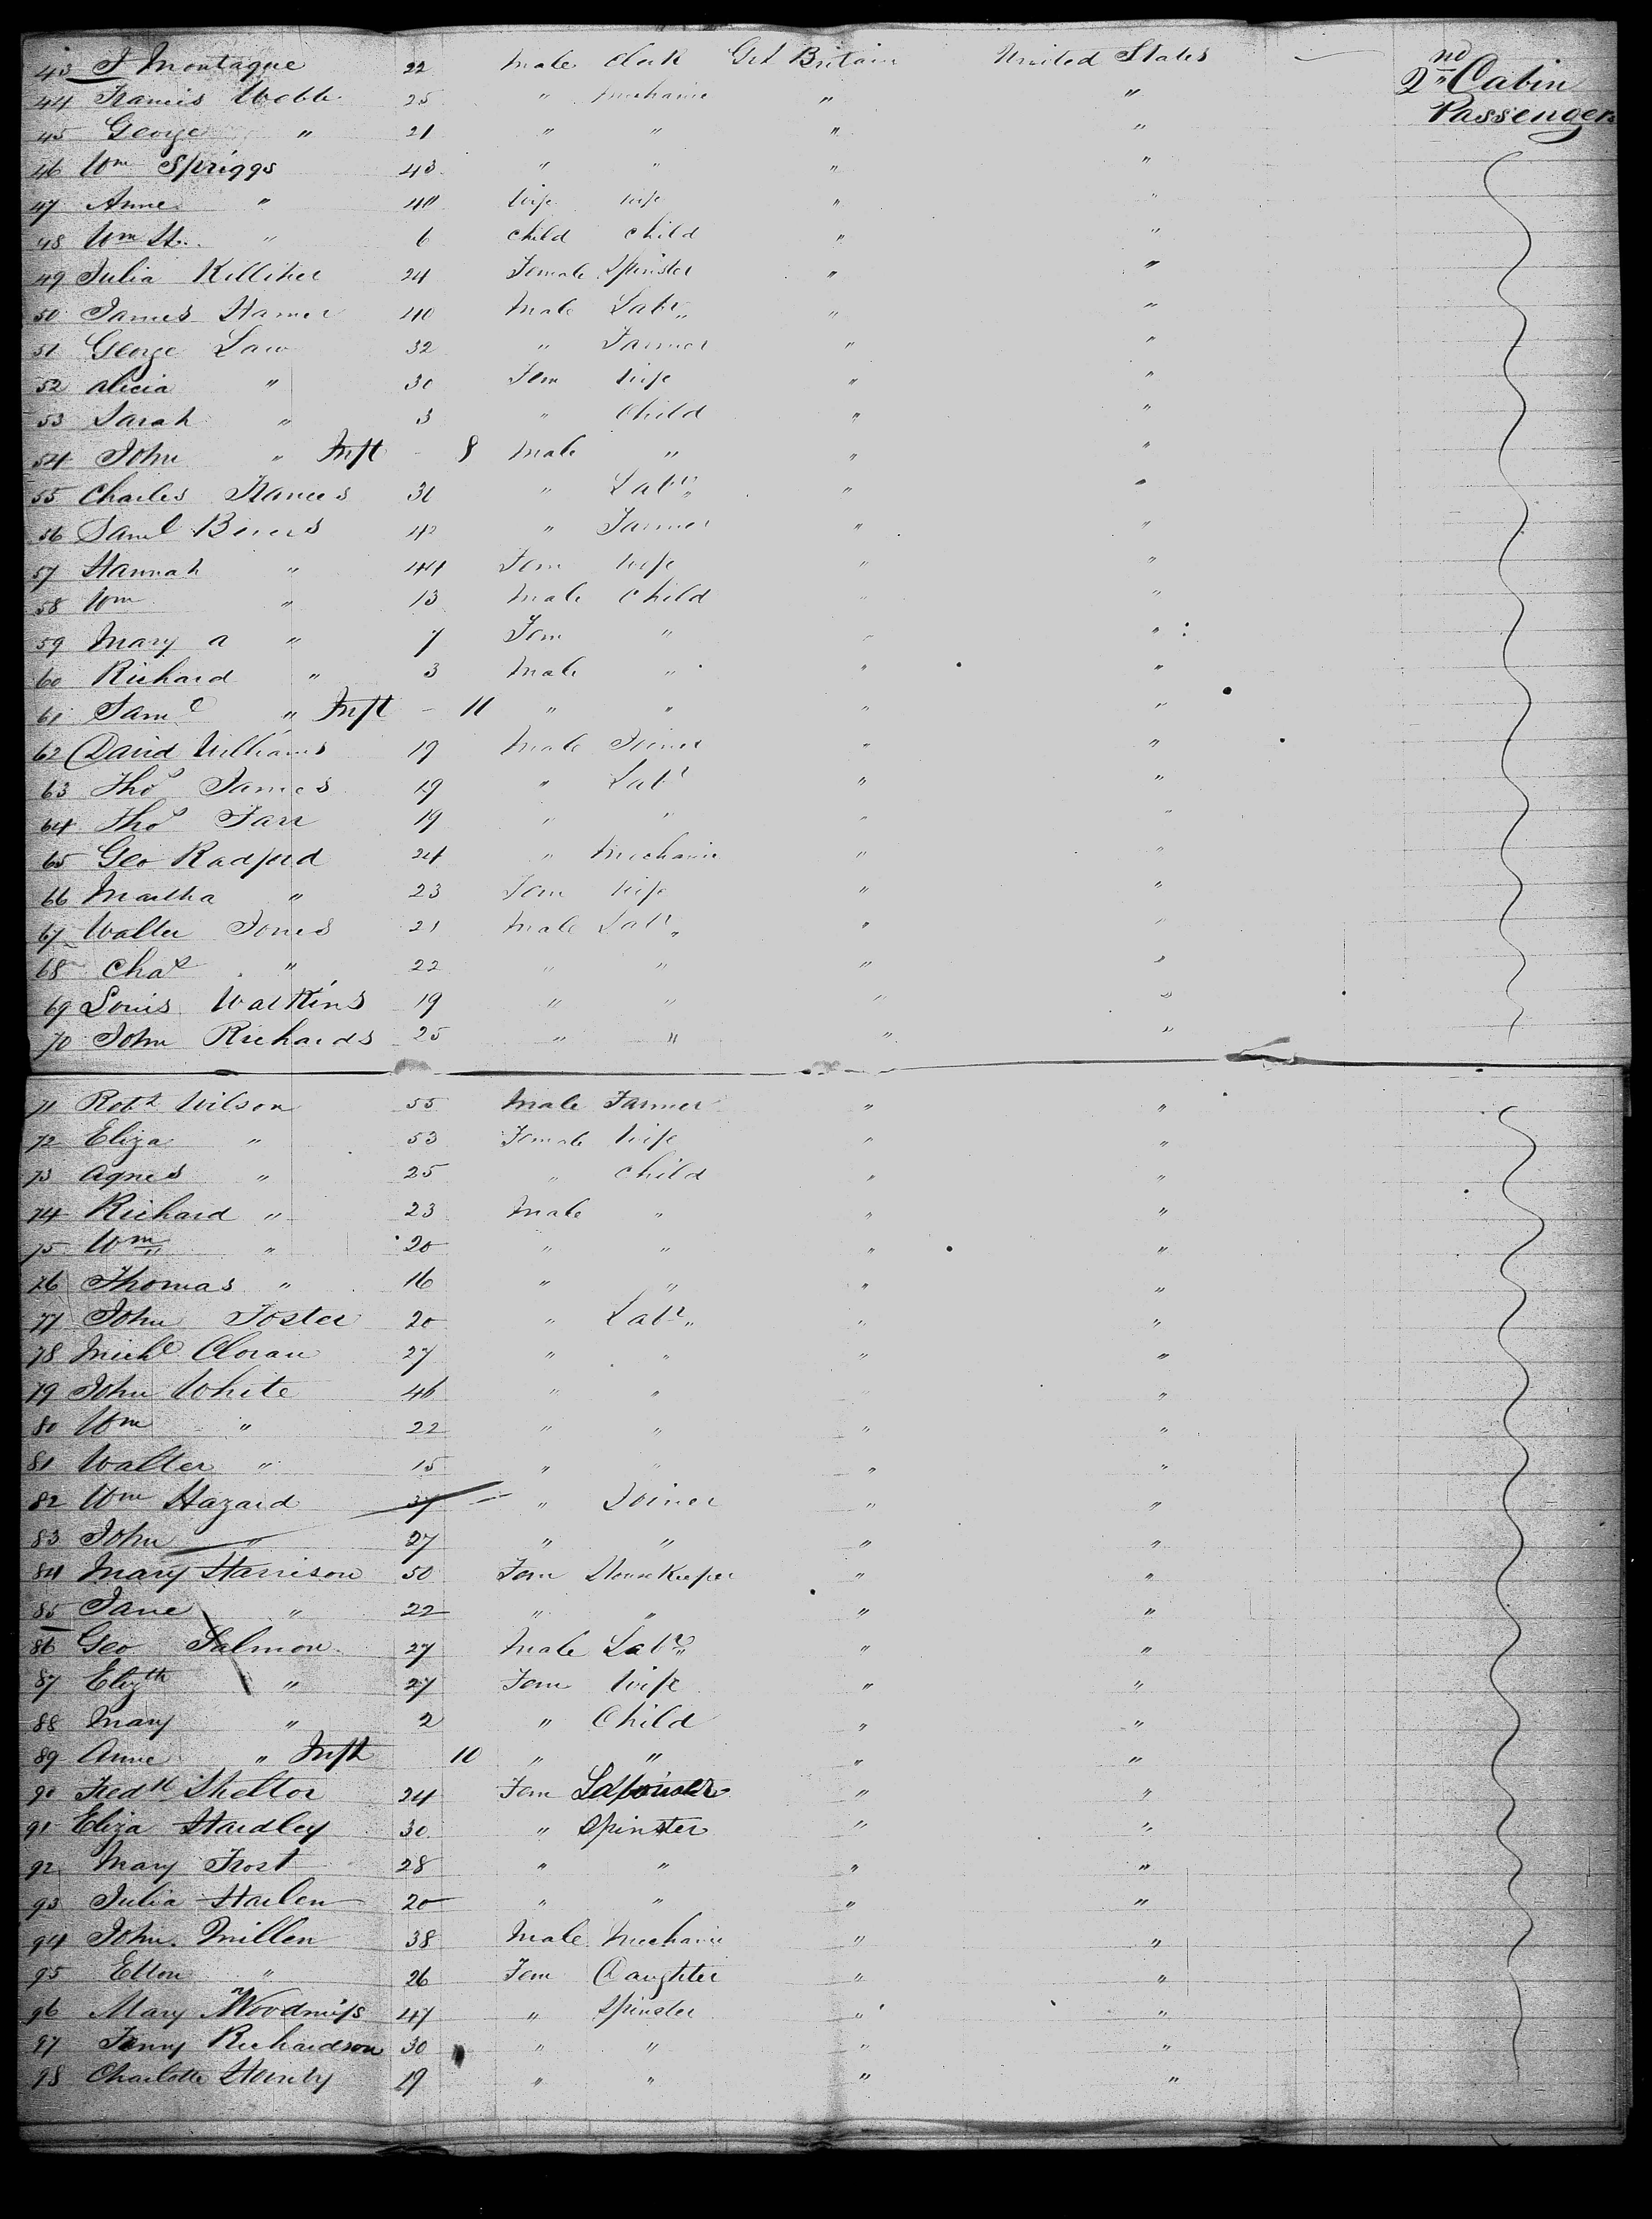 43 J Montague 22 Male Clerk Gt Britain United States 2nd Cabin
44 Francis Webb 25 " Mechanic " " Passengers
45 George " 21 " " " "
46 Wm Spriggs 43 " " " "
47 Anne " 40 Wife Wife " "
48 Wm H. " 6 Child Child " "
49 Julia Killiher 24 Female Spinster " "
50 James Hamer 40 Male Labr " "
51 George Law 32 " Farmer " "
52 Alicia " 30 Fem Wife " "
53 Sarah " 3 " Child " "
54 John " Inft - 8 Male " " "
55 Charles Frances 31 " Labr " "
56 Saml 42 " Farmer " "
57 Hannah " 44 Fem Wife " "
58 Wm " 13 Male Child " "
59 Mary A " 7 Fem " " "
60 Richard " 3 Male " " "
61 Saml " Inft - 11 " " " "
62 David Williams 19 Male Joiner " "
63 Thos James 19 " Labr " "
64 Thos Farr 19 " " " "
65 Geo Radford 24 " Mechanic " "
66 Martha " 23 Fem Wife " "
67 Walter Jones 21 Male Labr " "
68 Chas " 22 " " " "
69 Louis Watkins 19 " " " "
70 John Richards 25 " " " "
71 Robt Wilson 55 Male Farmer " "
72 Eliza " 53 Female Wife " "
73 Agnes " 25 " Child " "
74 Richard " 23 Male " " "
75 Wm " 20 " " " "
76 Thomas " 16 " " " "
77 John Foster 20 " Labr " "
78 Michl Cloran 27 " " " "
79 John White 46 " " " "
80 Wm " 22 " " " "
81 Walter " 15 " " " "
82 Wm Hazard 37 " Joiner " "
83 John " 27 " " " "
84 Mary Harrison 50 Fem HouseKeeper " "
85 Jane " 22 " " " "
86 Geo Salmon 27 Male Labr " "
87 Elizth " 27 Fem Wife " "
88 Mary " 2 " Child " "
89 Anne " Inft 10 " " " "
90 Fredk Shelton 24 Fem Labourer " "
91 Eliza Hardley 30 " Spinster " "
92 Mary Frost 28 " " " "
93 Julia Harlen 20 " " " "
94 John Millen 38 Male Mechanic " "
95 Ellen " 26 Fem Daughter " "
96 Mary Woodmiss 47 " Spinster " "
97 Fanny Richardson 30 " " " "
98 Charlotte Hornby 19 " " " "